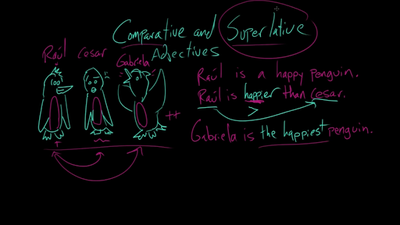 Comparative and Superlative
Adjectives
Raúl Cesar Gabriela
Raúl is a happy penguin.
Raúl is happier than Cesar.
>
++
Gabriela is the happiest penguin.